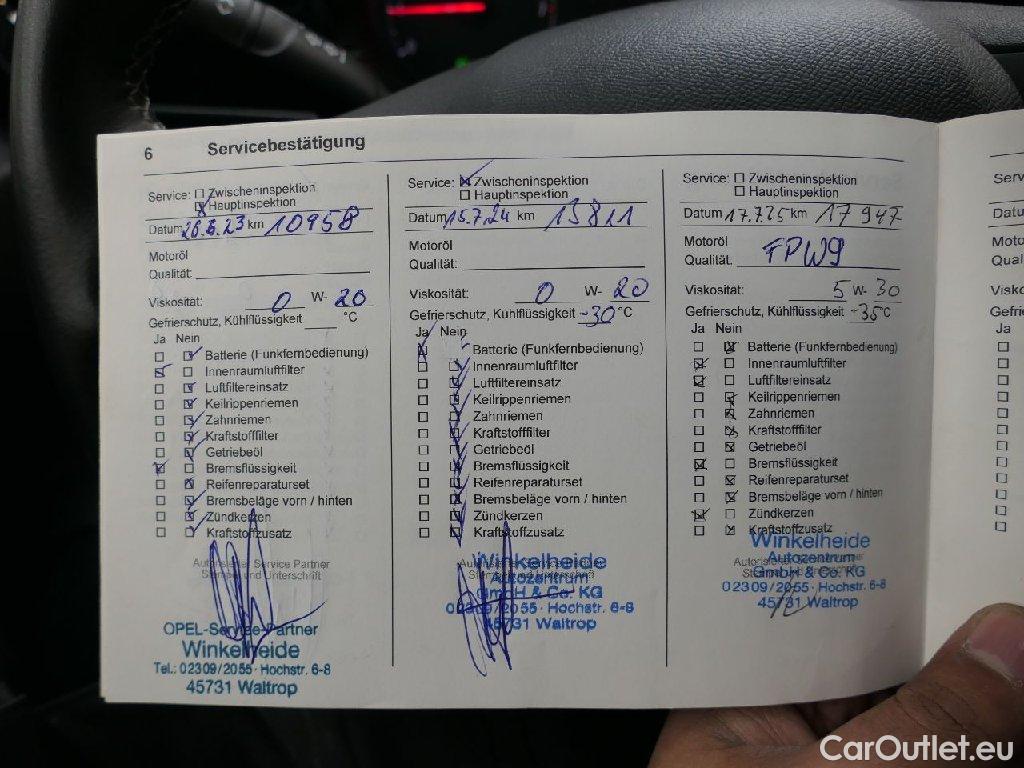 6 Servicebestätigung
Service: Zwischeninspektion
Hauptinspektion
Datum 26.6.23 km 10958
Motoröl
Qualität:
Viskosität: 0 W- 20
Gefrierschutz, Kühlflüssigkeit °C
Ja Nein
Batterie (Funkfernbedienung)
Innenraumluftfilter
Luftfiltereinsatz
Keilrippenriemen
Zahnriemen
Kraftstofffilter
Getriebeöl
Bremsflüssigkeit
Reifenreparaturset
Bremsbeläge vorn / hinten
Zündkerzen
Kraftstoffzusatz
Autorisierter Service Partner
Stempel und Unterschrift
OPEL-Service-Partner
Winkelheide
Tel.: 02309/2055 · Hochstr. 6-8
45731 Waltrop
Service: Zwischeninspektion
Hauptinspektion
Datum 15.7.24 km 13811
Motoröl
Qualität:
Viskosität: 0 W- 20
Gefrierschutz, Kühlflüssigkeit -30 °C
Ja Nein
Batterie (Funkfernbedienung)
Innenraumluftfilter
Luftfiltereinsatz
Keilrippenriemen
Zahnriemen
Kraftstofffilter
Getriebeöl
Bremsflüssigkeit
Reifenreparaturset
Bremsbeläge vorn / hinten
Zündkerzen
Kraftstoffzusatz
Winkelheide
Autozentrum
GmbH & Co. KG
02309/2055 · Hochstr. 6-8
45731 Waltrop
Service: Zwischeninspektion
Hauptinspektion
Datum 17.7.25 km 17947
Motoröl
Qualität: FPW9
Viskosität: 5 W- 30
Gefrierschutz, Kühlflüssigkeit -35 °C
Ja Nein
Batterie (Funkfernbedienung)
Innenraumluftfilter
Luftfiltereinsatz
Keilrippenriemen
Zahnriemen
Kraftstofffilter
Getriebeöl
Bremsflüssigkeit
Reifenreparaturset
Bremsbeläge vorn / hinten
Zündkerzen
Kraftstoffzusatz
Winkelheide
Autozentrum
GmbH & Co. KG
02309/2055 · Hochstr. 6-8
45731 Waltrop
Ja
CarOutlet.eu